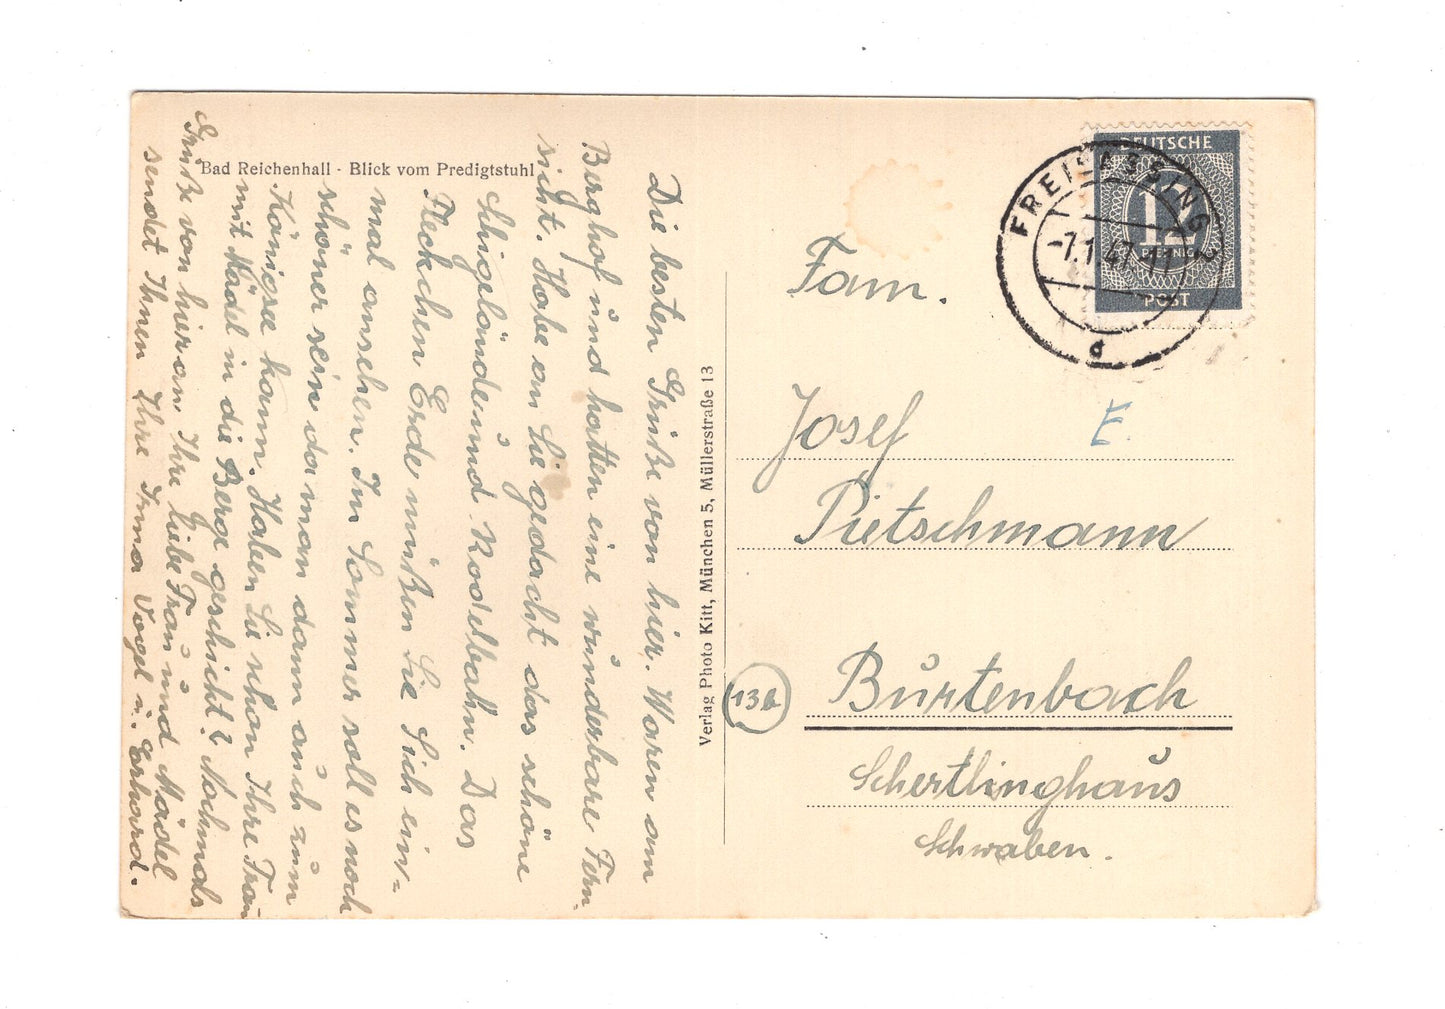 Bad Reichenhall - Blick vom Predigtstuhl
Die besten Grüße von hier. Waren am
Berghof und hatten eine wunderbare Fern-
sicht. Habe an Sie gedacht das schöne
Schigelände und Rodelbahn. Das
Fleckchen Erde müßen Sie Sich ein-
mal ansehen. Im Sommer soll es noch
schöner sein da man dann auch zum
Königsee kann. Haben Sie schon Ihre Frau
mit Mädel in die Berge geschickt? Nochmals
Grüße von hier an Ihre liebe Frau und Mädel
sendet Ihnen Ihre Irma Vogel u. Erhard.
Verlag Photo Kitt, München 5, Müllerstraße 13
DEUTSCHE
12
PFENNIG
POST
FREILASSING 2
-7.1.47-11
d
Fam.
E.
Josef
Pietschmann
13b
Burtenbach
Schertlinghaus
Schwaben.